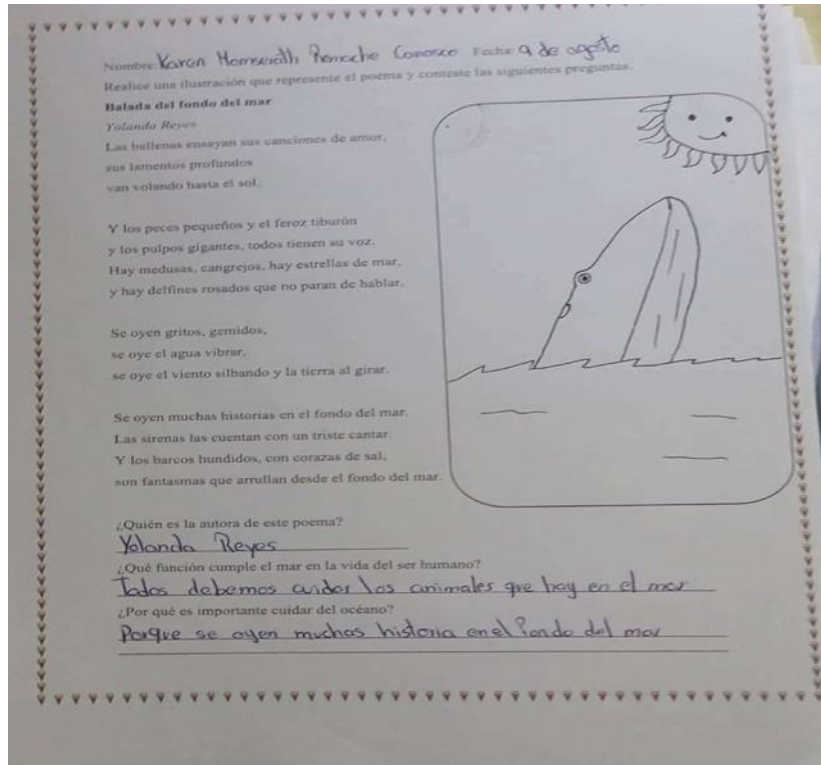 Nombre: Karen Monserath Remache Conosco Fecha: 9 de agosto
Realice una ilustración que represente el poema y conteste las siguientes preguntas.
Balada del fondo del mar
Yolanda Reyes
Las ballenas ensayan sus canciones de amor,
sus lamentos profundos
van volando hasta el sol.
Y los peces pequeños y el feroz tiburón
y los pulpos gigantes, todos tienen su voz.
Hay medusas, cangrejos, hay estrellas de mar,
y hay delfines rosados que no paran de hablar.
Se oyen gritos, gemidos,
se oye el agua vibrar,
se oye el viento silbando y la tierra al girar.
Se oyen muchas historias en el fondo del mar.
Las sirenas las cuentan con un triste cantar.
Y los barcos hundidos, con corazas de sal,
son fantasmas que arrullan desde el fondo del mar.
¿Quién es la autora de este poema?
Yolanda Reyes
¿Qué función cumple el mar en la vida del ser humano?
Todos debemos cuidar los animales que hay en el mar
¿Por qué es importante cuidar del océano?
Porque se oyen muchas historia en el fondo del mar